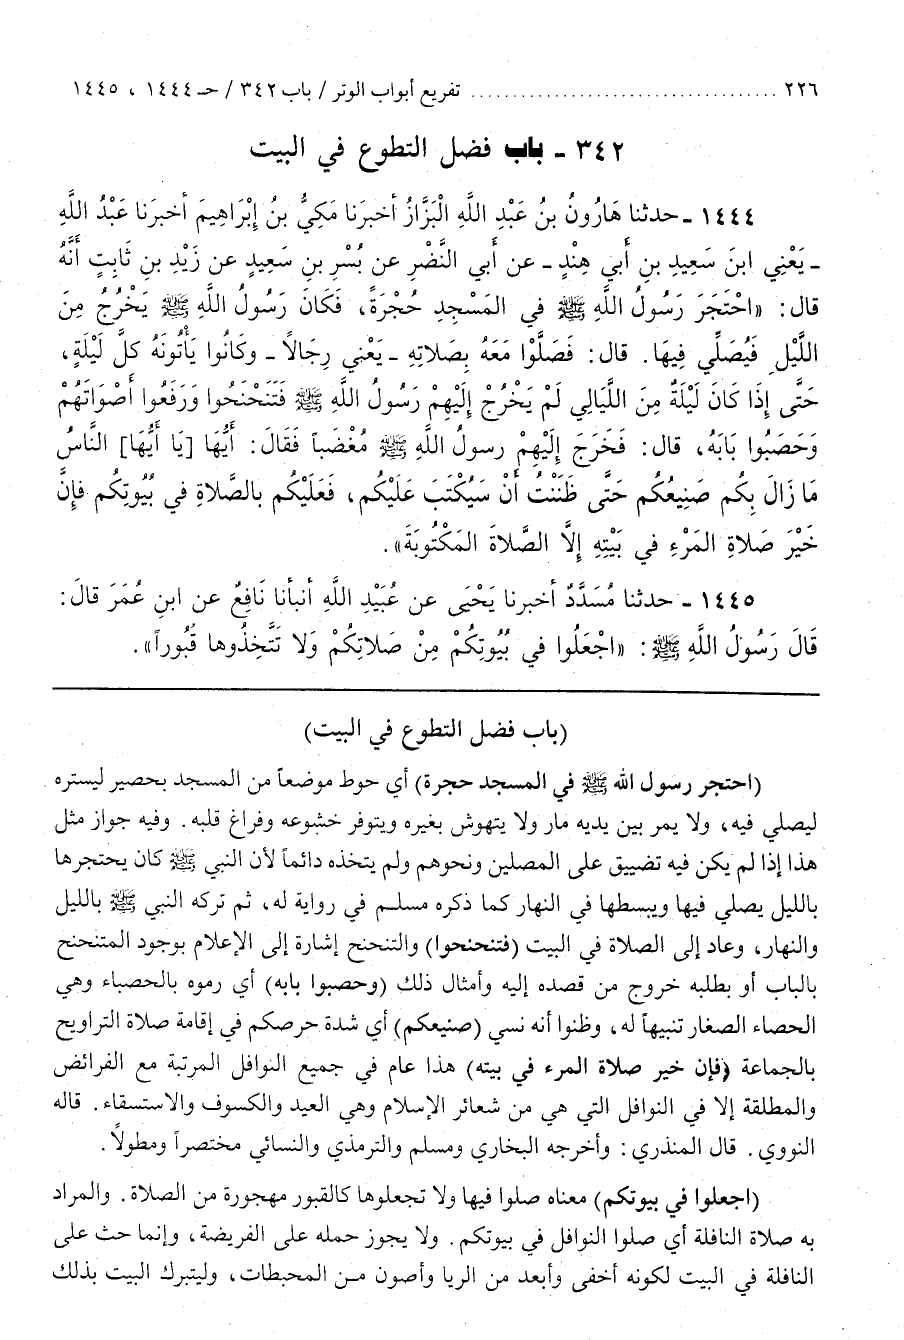 ٢٢٦ ..................................... تفريع أبواب الوتر / باب ٣٤٢ / حـ ١٤٤٤ ، ١٤٤٥
٣٤٢ ـ باب فضل التطوع في البيت
١٤٤٤ ـ حدثنا هَارُونُ بنُ عَبْدِ اللَّهِ الْبَزَّازُ أخبرَنا مَكِيُّ بنُ إبْرَاهِيمَ أخبرَنا عَبْدُ اللَّهِ
ـ يَعْنِي ابنَ سَعِيدِ بنِ أَبي هِنْدٍ ـ عن أَبي النَّضْرِ عن بُسْرِ بنِ سَعِيدٍ عن زَيْدِ بنِ ثَابِتٍ أنَّهُ
قال: «احْتَجَرَ رَسُولُ اللَّهِ ﷺ في المَسْجِدِ حُجْرَةً، فَكَانَ رَسُولُ اللَّهِ ﷺ يَخْرُجُ مِنَ
اللَّيْلِ فَيُصَلِّي فِيهَا. قال: فَصَلَّوْا مَعَهُ بِصَلاتِهِ ـ يَعْني رِجَالاً ـ وكَانُوا يَأْتُونَهُ كلَّ لَيْلَةٍ،
حَتَّى إذَا كَانَ لَيْلَةٌ مِنَ اللَّيَالي لَمْ يَخْرُجْ إلَيْهِمْ رَسُولُ اللَّهِ ﷺ فَتَنَحْنَحُوا وَرَفَعُوا أصْوَاتَهُمْ
وَحَصَبُوا بَابَهُ، قال: فَخَرَجَ إلَيْهِمْ رسولُ اللَّهِ ﷺ مُغْضَباً فَقَالَ: أيُّهَا [يَا أيُّهَا] النَّاسُ
مَا زَالَ بِكُم صَنِيعُكُم حَتَّى ظَنَنْتُ أنْ سَيُكْتَبَ عَلَيْكُم، فَعَلَيْكُم بالصَّلاةِ في بُيُوتِكُم فإنَّ
خَيْرَ صَلاةِ المَرْءِ في بَيْتِهِ إلَّا الصَّلاةَ المَكْتُوبَةَ».
١٤٤٥ ـ حدثنا مُسَدَّدٌ أخبرنا يَحْيَى عن عُبَيْدِ اللَّهِ أنبأنا نَافِعٌ عن ابنِ عُمَرَ قالَ:
قَالَ رَسُولُ اللَّهِ ﷺ: «اجْعَلُوا في بُيُوتِكُمْ مِنْ صَلاتِكُمْ وَلا تَتَّخِذُوها قُبُوراً».
(باب فضل التطوع في البيت)
(احتجر رسول الله ﷺ في المسجد حجرة) أي حوط موضعاً من المسجد بحصير ليستره
ليصلي فيه، ولا يمر بين يديه مار ولا يتهوش بغيره ويتوفر خشوعه وفراغ قلبه. وفيه جواز مثل
هذا إذا لم يكن فيه تضييق على المصلين ونحوهم ولم يتخذه دائماً لأن النبي ﷺ كان يحتجرها
بالليل يصلي فيها ويبسطها في النهار كما ذكره مسلم في رواية له، ثم تركه النبي ﷺ بالليل
والنهار، وعاد إلى الصلاة في البيت (فتنحنحوا) والتنحنح إشارة إلى الإعلام بوجود المتنحنح
بالباب أو بطلبه خروج من قصده إليه وأمثال ذلك (وحصبوا بابه) أي رموه بالحصباء وهي
الحصاء الصغار تنبيهاً له، وظنوا أنه نسي (صنيعكم) أي شدة حرصكم في إقامة صلاة التراويح
بالجماعة (فإن خير صلاة المرء في بيته) هذا عام في جميع النوافل المرتبة مع الفرائض
والمطلقة إلا في النوافل التي هي من شعائر الإسلام وهي العيد والكسوف والاستسقاء. قاله
النووي. قال المنذري: وأخرجه البخاري ومسلم والترمذي والنسائي مختصراً ومطولاً.
(اجعلوا في بيوتكم) معناه صلوا فيها ولا تجعلوها كالقبور مهجورة من الصلاة. والمراد
به صلاة النافلة أي صلوا النوافل في بيوتكم. ولا يجوز حمله على الفريضة، وإنما حث على
النافلة في البيت لكونه أخفى وأبعد من الريا وأصون من المحبطات، وليتبرك البيت بذلك